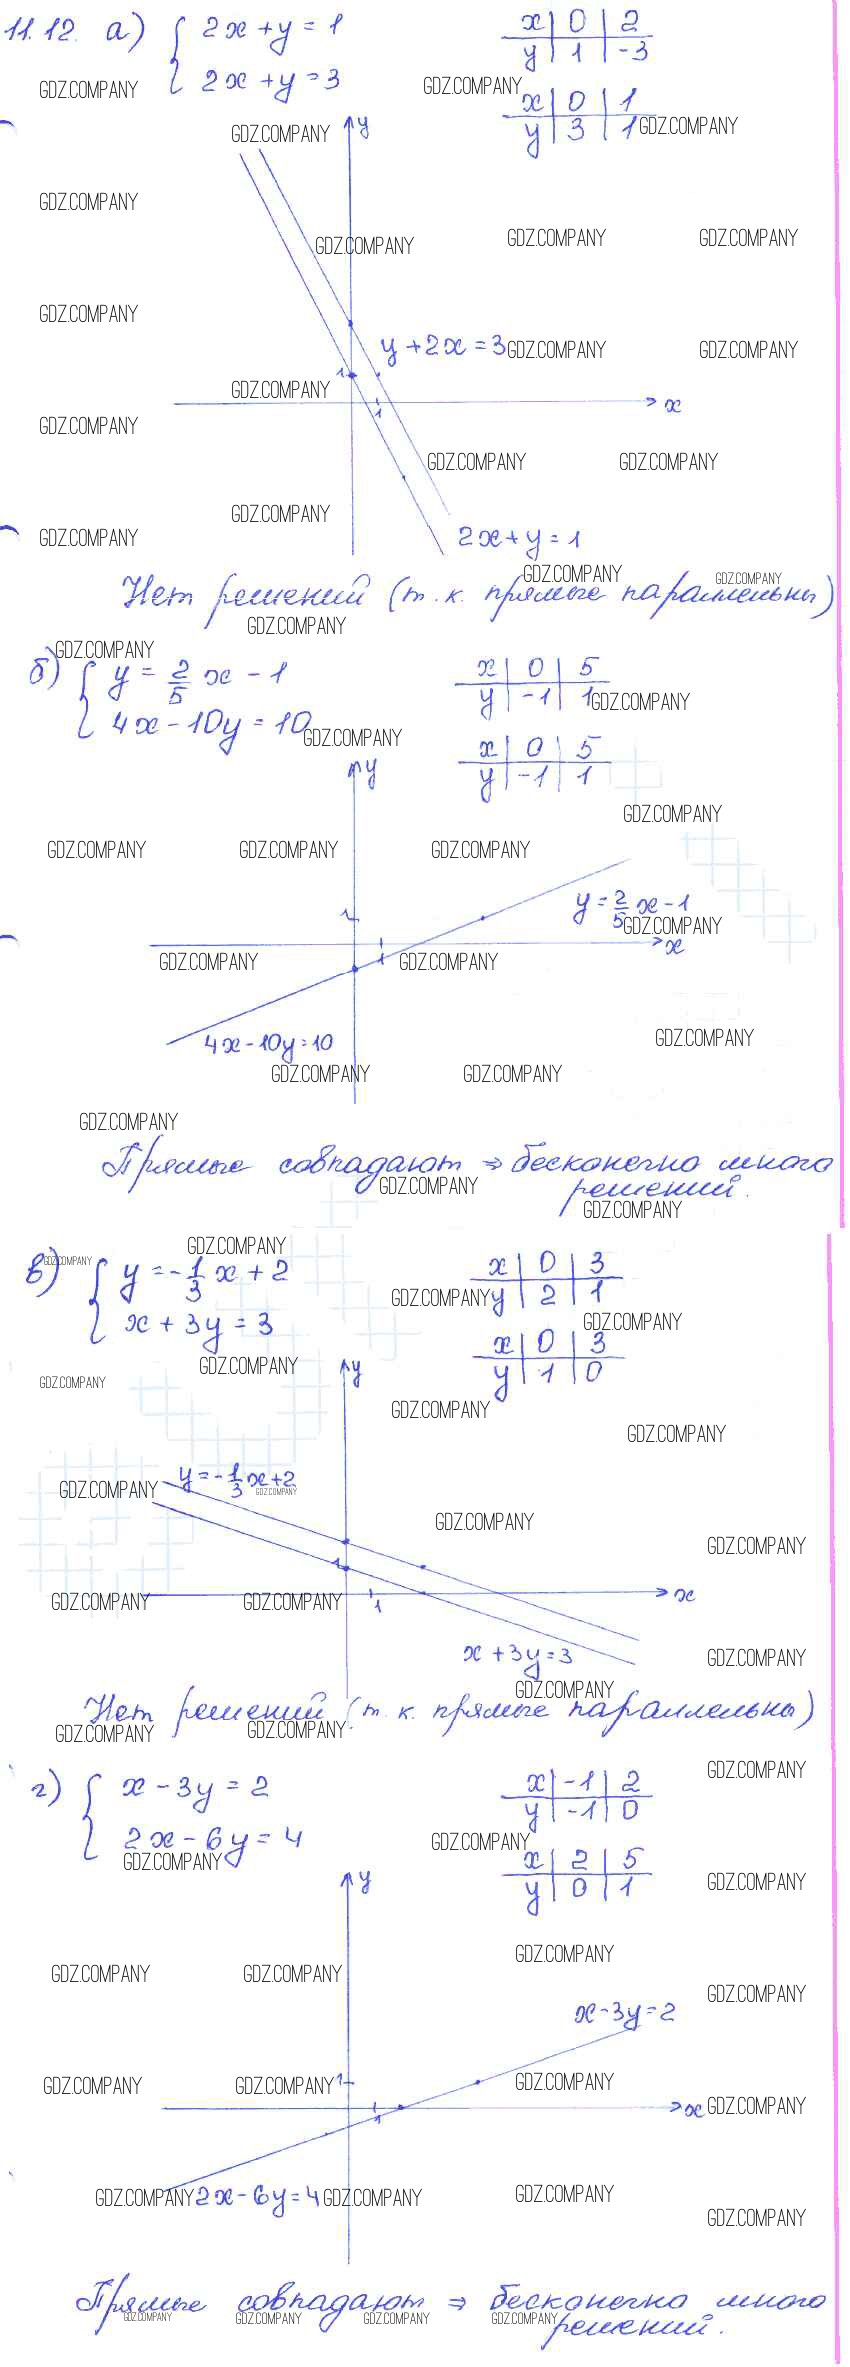 11.12. а) { 2x + y = 1
2x + y = 3
x | 0 | 2
y | 1 | -3
x | 0 | 1
y | 3 | 1
GDZ.COMPANY
y
y + 2x = 3
1
1
x
2x + y = 1
Нет решений (т.к. прямые параллельны)
б) { y = 2/5 x - 1
4x - 10y = 10
x | 0 | 5
y | -1 | 1
x | 0 | 5
y | -1 | 1
y
y = 2/5 x - 1
1
1
x
4x - 10y = 10
Прямые совпадают ⇒ бесконечно много
решений.
в) { y = -1/3 x + 2
x + 3y = 3
x | 0 | 3
y | 2 | 1
x | 0 | 3
y | 1 | 0
y
y = -1/3 x + 2
1
1
x
x + 3y = 3
Нет решений (т.к. прямые параллельны)
г) { x - 3y = 2
2x - 6y = 4
x | -1 | 2
y | -1 | 0
x | 2 | 5
y | 0 | 1
y
x - 3y = 2
1
1
x
2x - 6y = 4
Прямые совпадают ⇒ бесконечно много
решений.